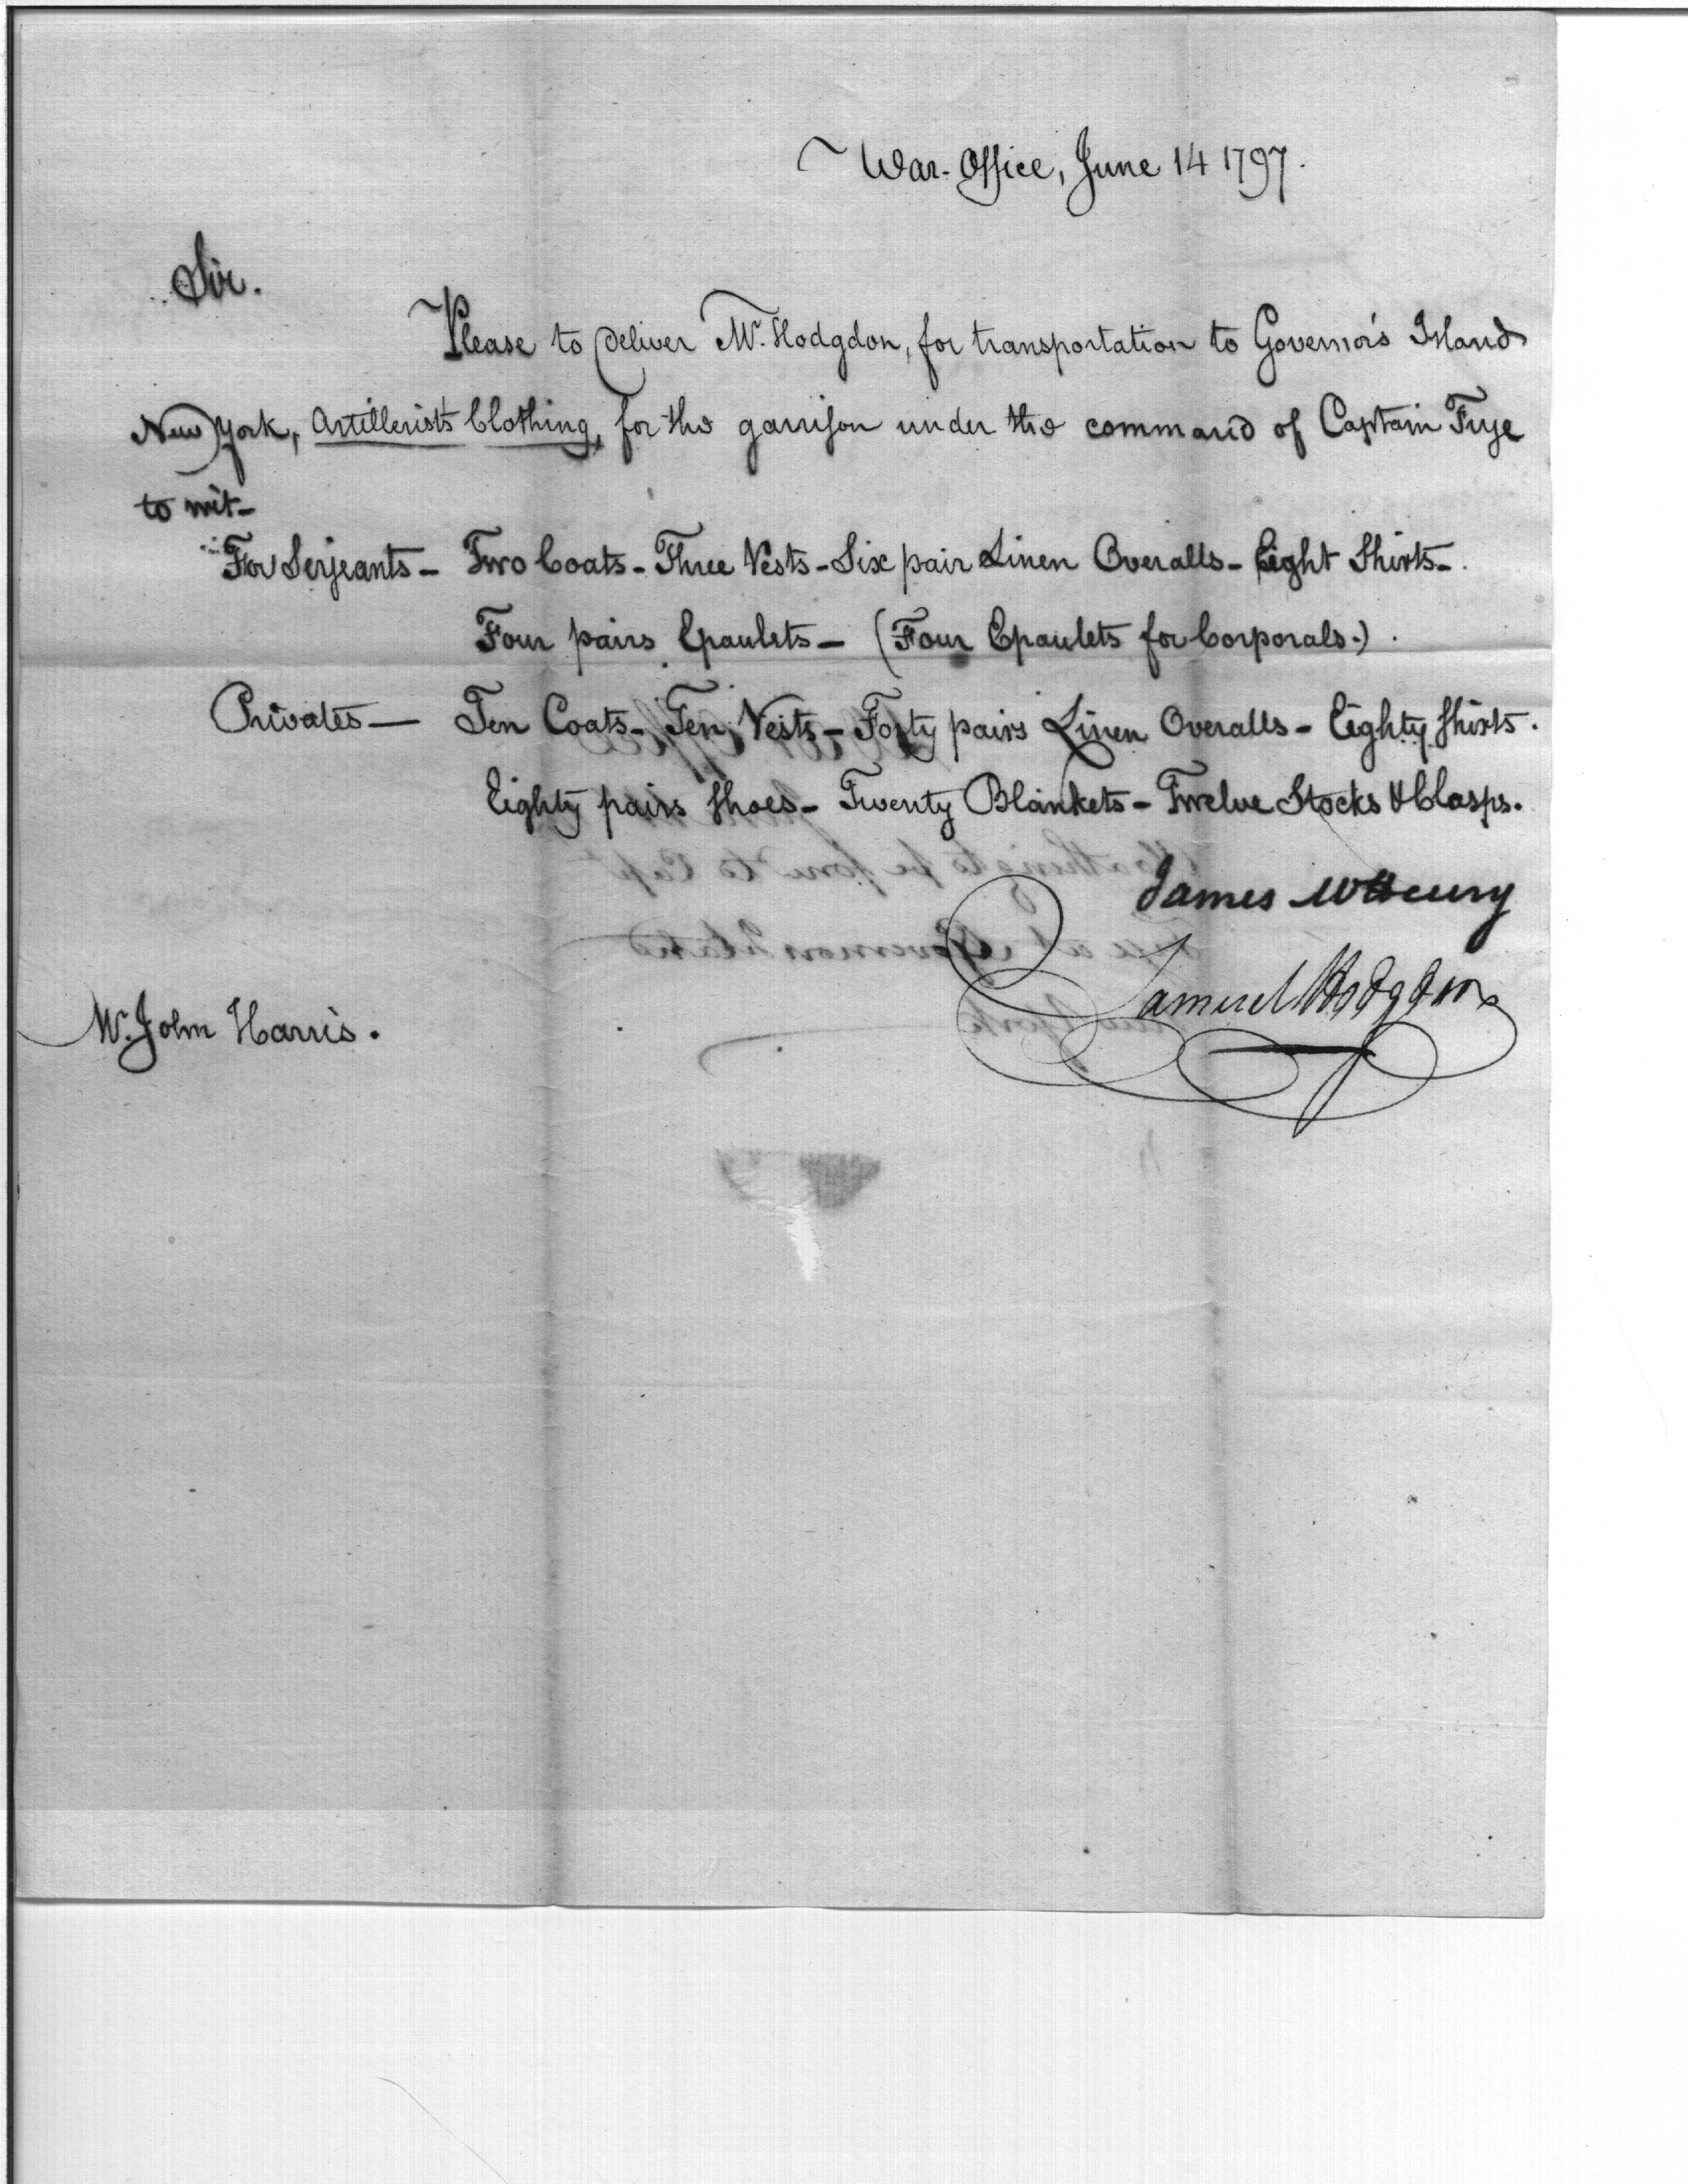 War-Office, June 14 1797.
Sir.
Please to deliver Mr. Hodgdon, for transportation to Governor's Island
New York, Artillerists Clothing, for the garrison under the command of Captain Frye
to wit-
For Serjeants - Two Coats - Three Vests - Six pair Linen Overalls - Eight Shirts -
Four pairs Epaulets - (Four Epaulets for Corporals.)
Privates - Ten Coats - Ten Vests - Forty pairs Linen Overalls - Eighty Shirts.
Eighty pairs Shoes - Twenty Blankets - Twelve Stocks & Clasps.
James McHenry
Samuel Hodgdon
Mr. John Harris.